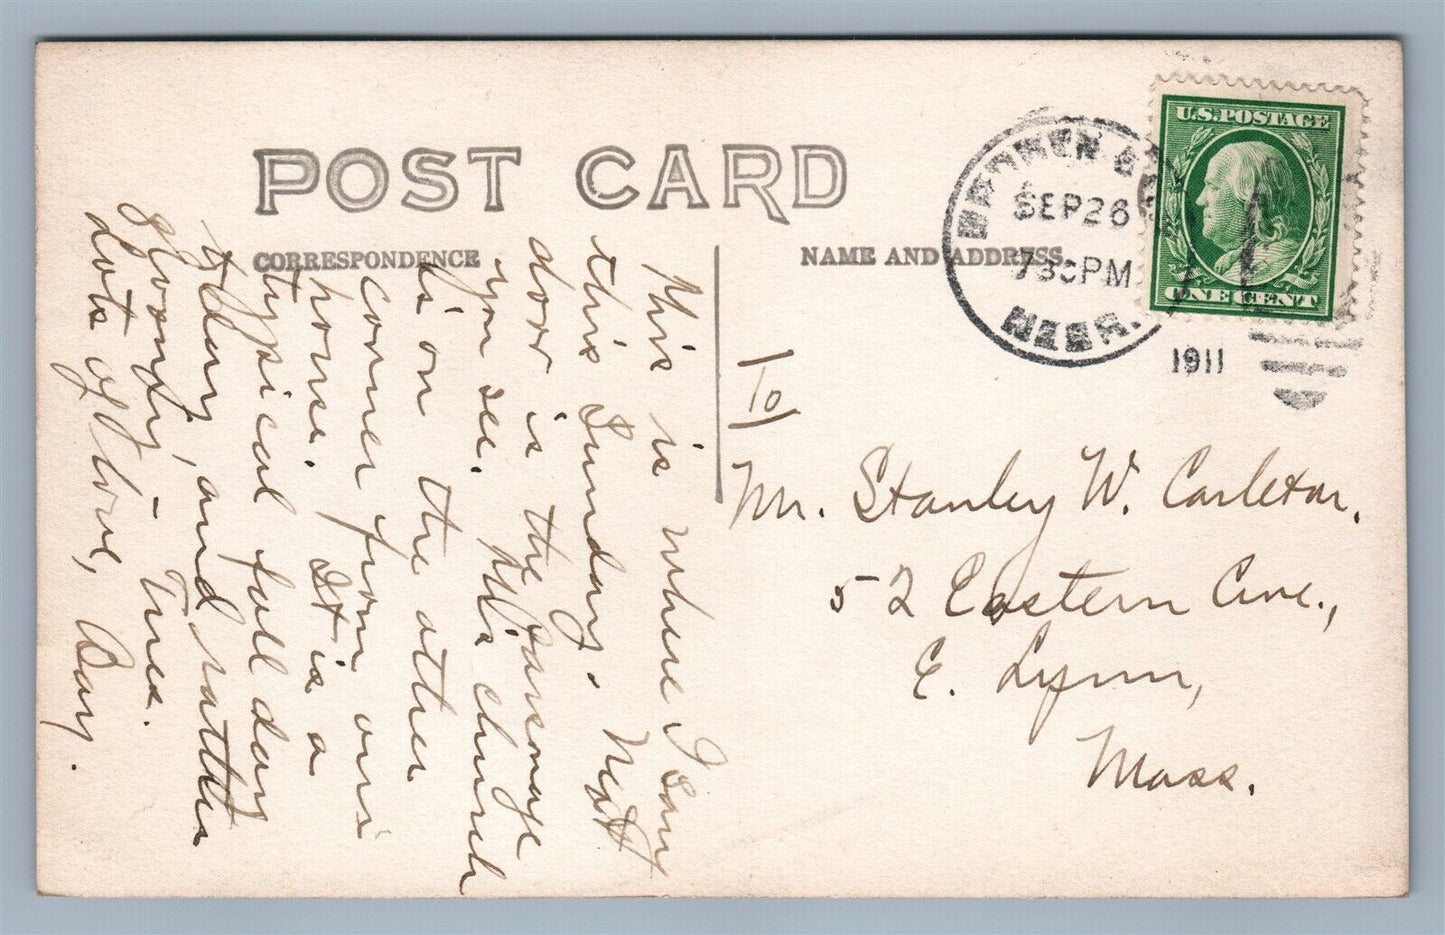 POST CARD
CORRESPONDENCE
NAME AND ADDRESS
BROKEN BOW
SEP 26
730 PM
NEBR.
1911
U.S. POSTAGE
ONE CENT
This is where I sang
this Sunday. Next
door is the Parsonage
you see. This church
is on the other
corner from our
house. It is a
typical fall day
today, and rather
gloomy, – Tues.
Lots of love, Day.
To
Mr. Stanley W. Carleton.
52 Eastern Ave.,
E. Lynn,
Mass.